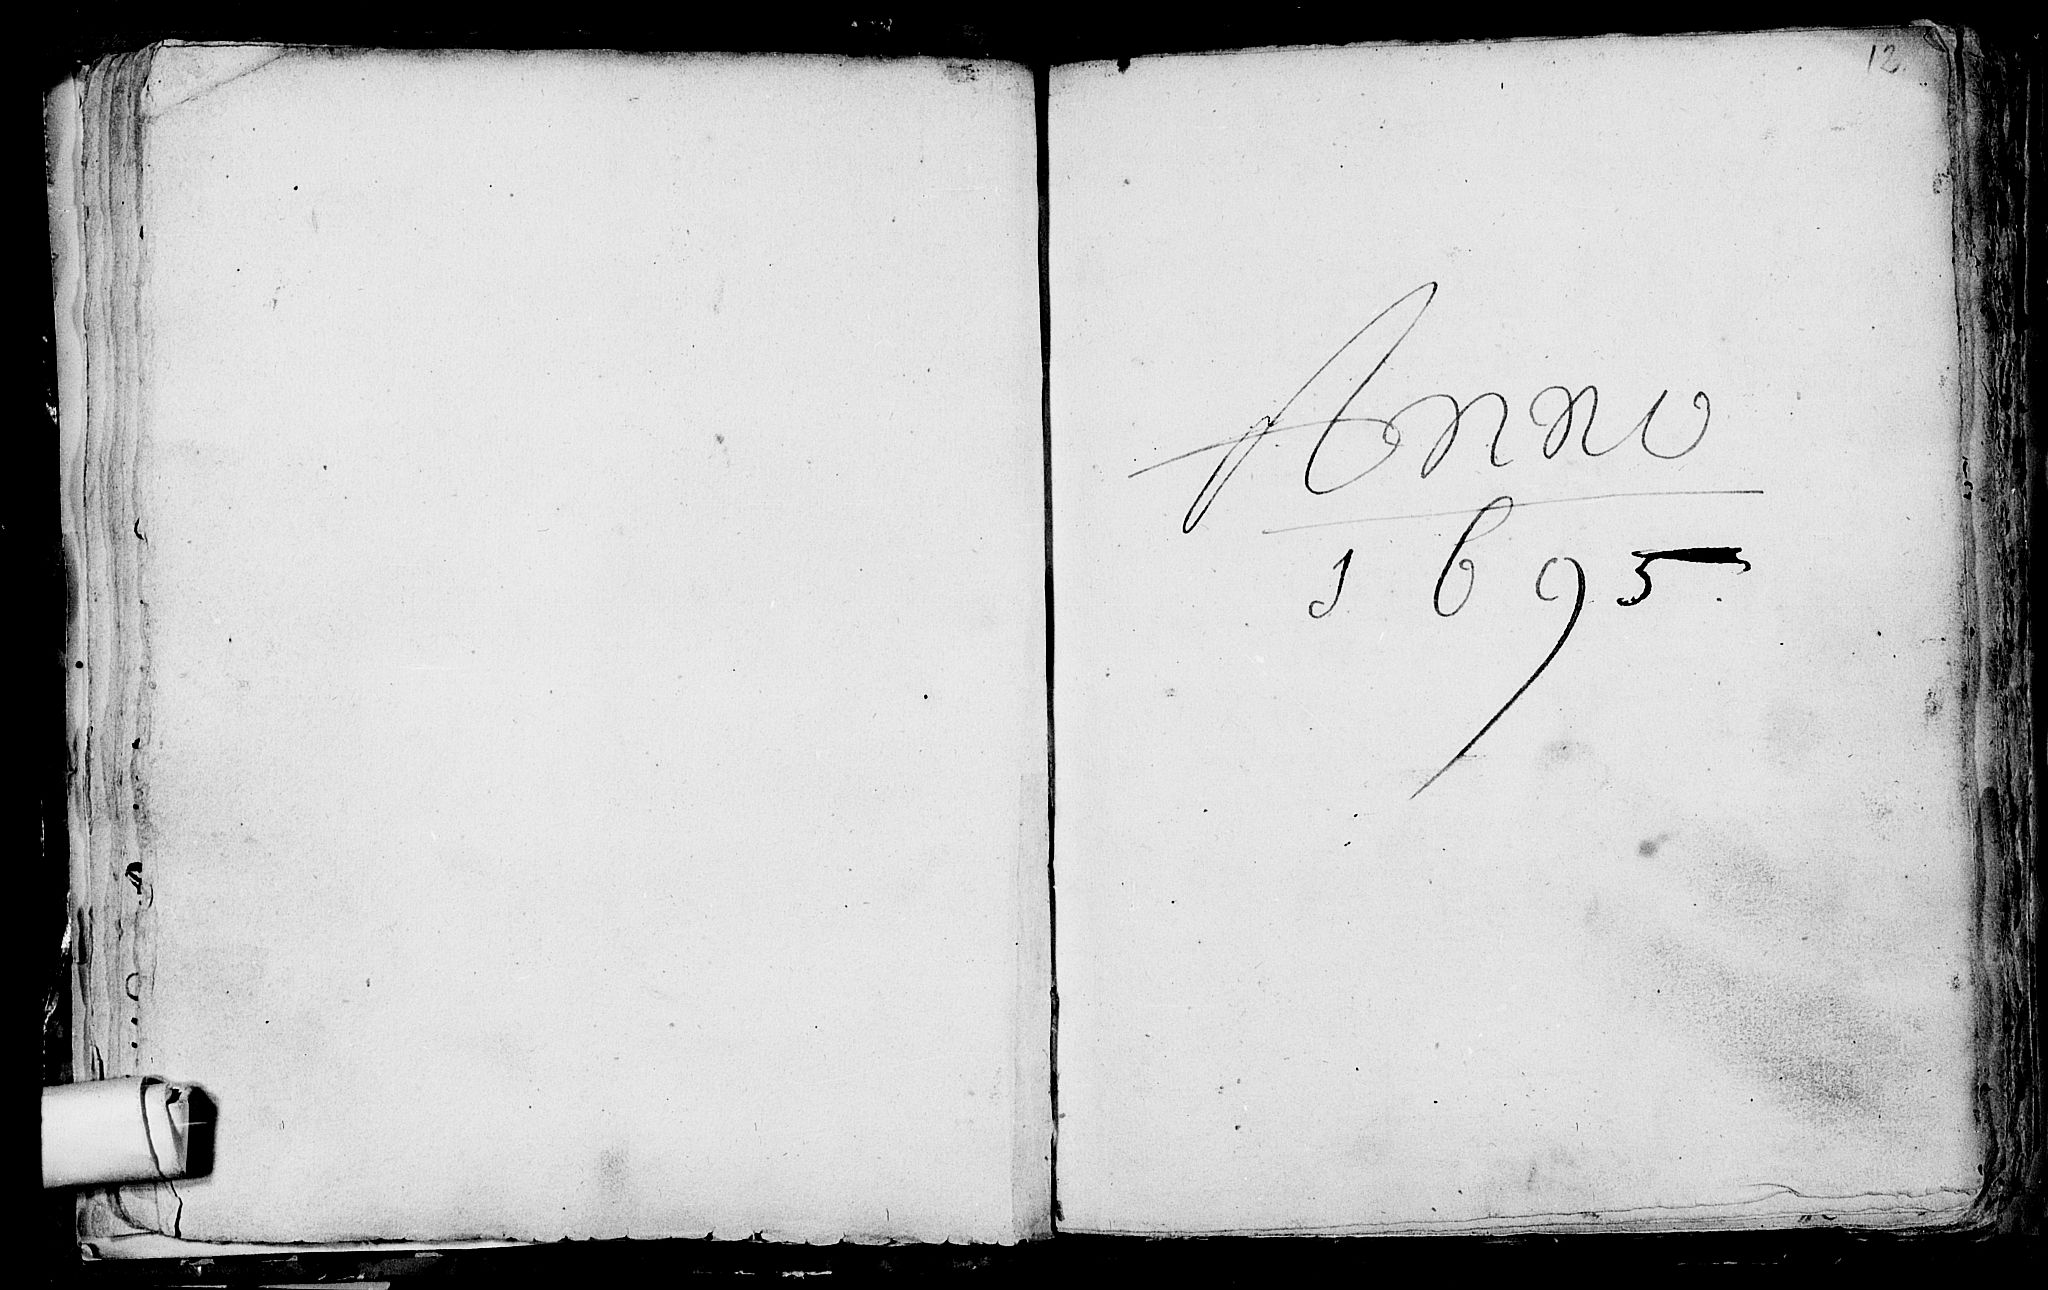 12
Anno
1695.